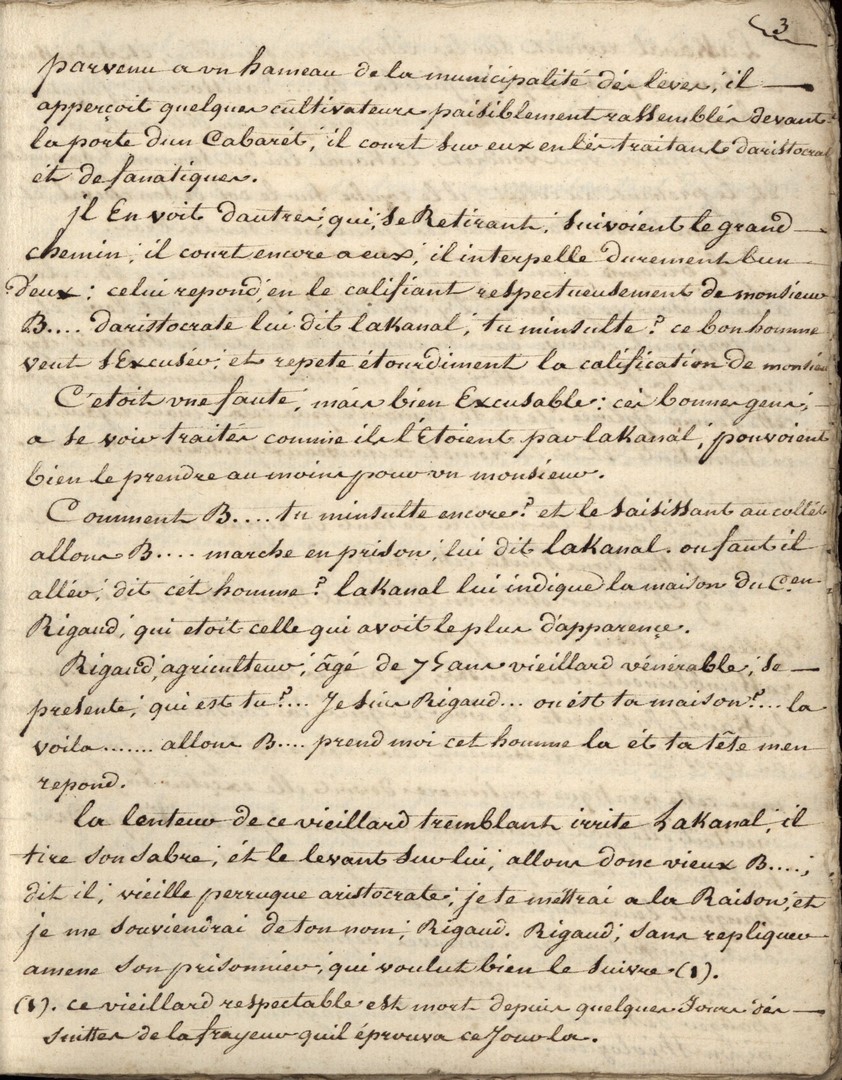 3
parvenu a un hameau de la municipalité dés leves, il
apperçoit quelques cultivateurs paisiblement rassemblés devant
la porte dun Cabarét, il court sur eux en lés traitant daristocrat
ét de fanatiques.
jl En voit dautres, qui, se Retirant, suivoient le grand
chemin, il court encore a eux, il interpelle durement lun
d'eux : celui repond, en le calificant respectueusement de monsieur
B.... daristocrate lui dit laKanal, tu minsulte? ce bon homme
veut sExcusér, et repete étourdiment la calification de monsieu
C'etoit une faute, mais bien Excusable : ces bonnes gens,
a se voir traités comme ils l'Etoient par laKanal, pouvoient
bien le prendre au moins pour un monsieur.
Comment B.... tu minsulte encore? et le saisissant au collét
allons B.... marche en prison, lui dit laKanal. ou faut il
allér, dit cét homme? laKanal lui indique la maison du C.en
Rigaud, qui etoit celle qui avoit le plus d'apparençe.
Rigaud, agriculteur, âgé de 75 ans vieillard vénérable, se
presente, qui est tu?... Je suis Rigaud... ou ést ta maison?... la
voila....... allons B.... prend moi cet homme la ét ta tête men
repond.
la lenteur de ce vieillard tremblant irrite LaKanal, il
tire son sabre, ét le levant sur lui, allons donc vieux B....,
dit il, vieille perruque aristocrate, je te mettrai a la Raison, et
je me souviendrai de ton nom, Rigaud. Rigaud, sans repliquer
amene son prisonnier, qui voulut bien le suivre (1).
(1). ce vieillard respectable est mort depuis quelques Jours dés
suittes de la frayeur quil éprouva ce Jour la.